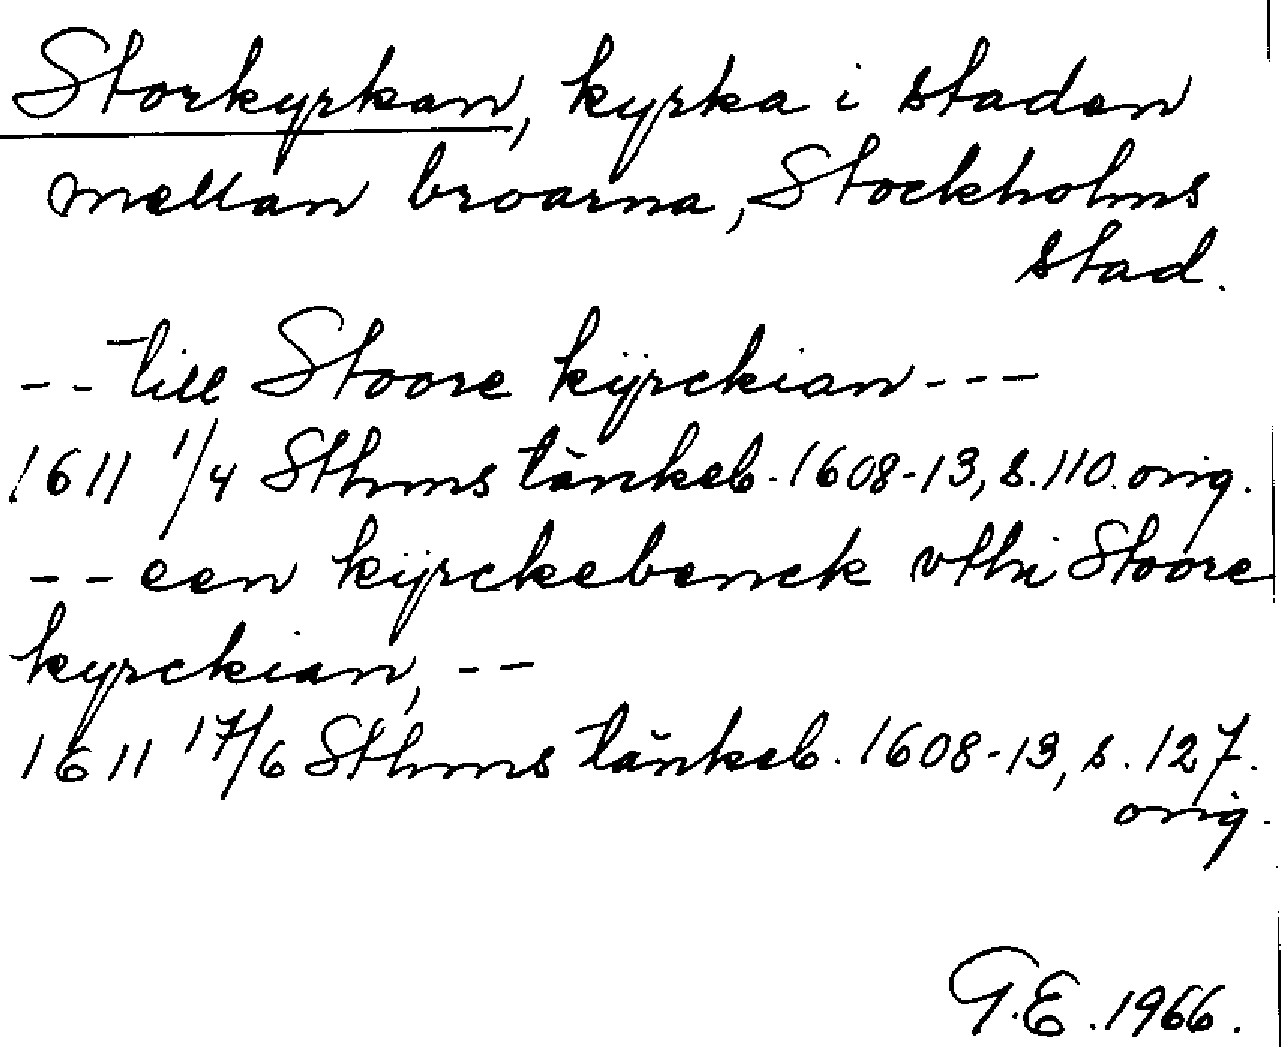 Storkyrkan, kyrka i staden
mellan broarna, Stockholms
stad.
-- till Stoore kÿrckian ---
1611 1/4 Sthms tänkeb. 1608-13, s. 110. orig.
-- een kÿrckebenck vthi Stoore
kyrckian, --
1611 17/6 Sthms tänkeb. 1608-13, s. 127.
orig.
G.E. 1966.